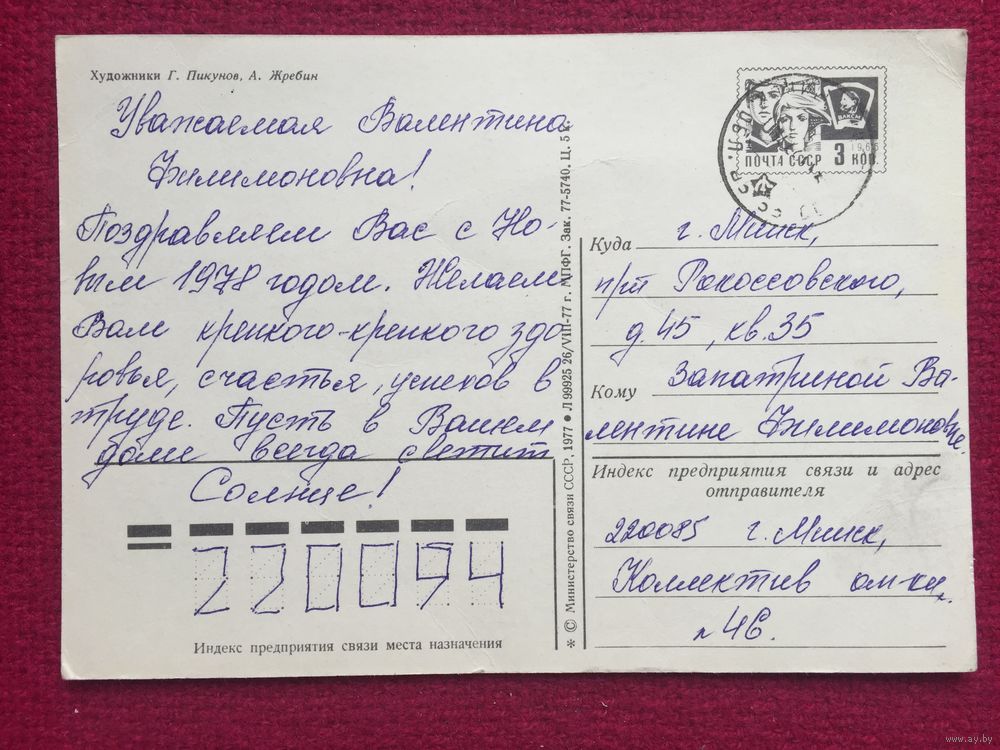 Художники Г. Пикунов, А. Жребин
Уважаемая Валентина
Филимоновна!
Поздравляем Вас с Но-
вым 1978 годом. Желаем
Вам крепкого-крепкого здо
ровья, счастья, успехов в
труде. Пусть в Вашем
доме всегда светит
Солнце!
220094
Индекс предприятия связи места назначения
* © Министерство связи СССР, 1977 • Л 99925 26/VIII-77 г. МПФГ. Зак. 77-5740. Ц. 5 к.
ВЛКСМ
1966
ПОЧТА СССР 3 КОП
Куда г. Минск,
пр-т Рокоссовского,
д. 45, кв. 35
Кому Запатриной Ва-
лентине Филимоновне.
Индекс предприятия связи и адрес
отправителя
220085 г. Минск,
Коллектив
46.
www.ay.by